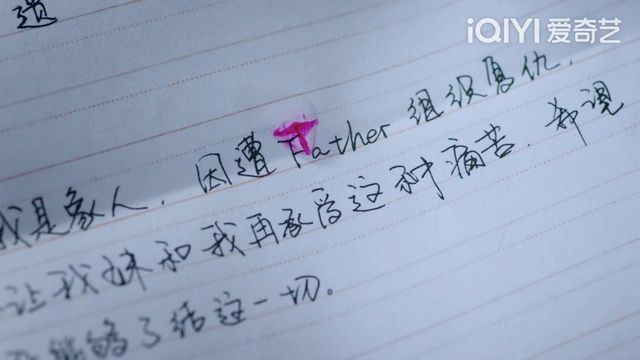 遗
iQIYI 爱奇艺
我是象人，因遭Father组织复仇，
让我妹和我再承受这种痛苦，希望
能够了结这一切。